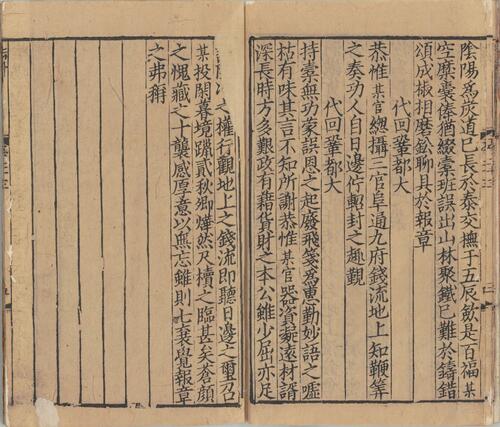 陰陽為炭道已長於泰交撫于五辰歛是百福某
空縻橐俸猶綴橐班誤出山林聚鐵已難於鑄錯
頌成椒柏磨鉛聊具於報章
代回鞏都大
恭惟某官總攝三官阜通九府錢流地上知鞭筭
之奏功人自日邊佇軺封之趣覲
代回鞏都大
持橐無功蒙誤恩之起廢飛箋為惠勤妙語之噓
枯有味其言不知所謝恭惟某官器資豪遠材諝
深長時方多艱政有藉貨財之本公雖少屈亦足
之權行觀地上之錢流即聽日邊之璽召
某投閑暮境躐貳秋卿燁然尺牘之臨甚矣蒼顏
之愧藏之十襲感厚意以無忘雖則七襄覺報章
之弗稱